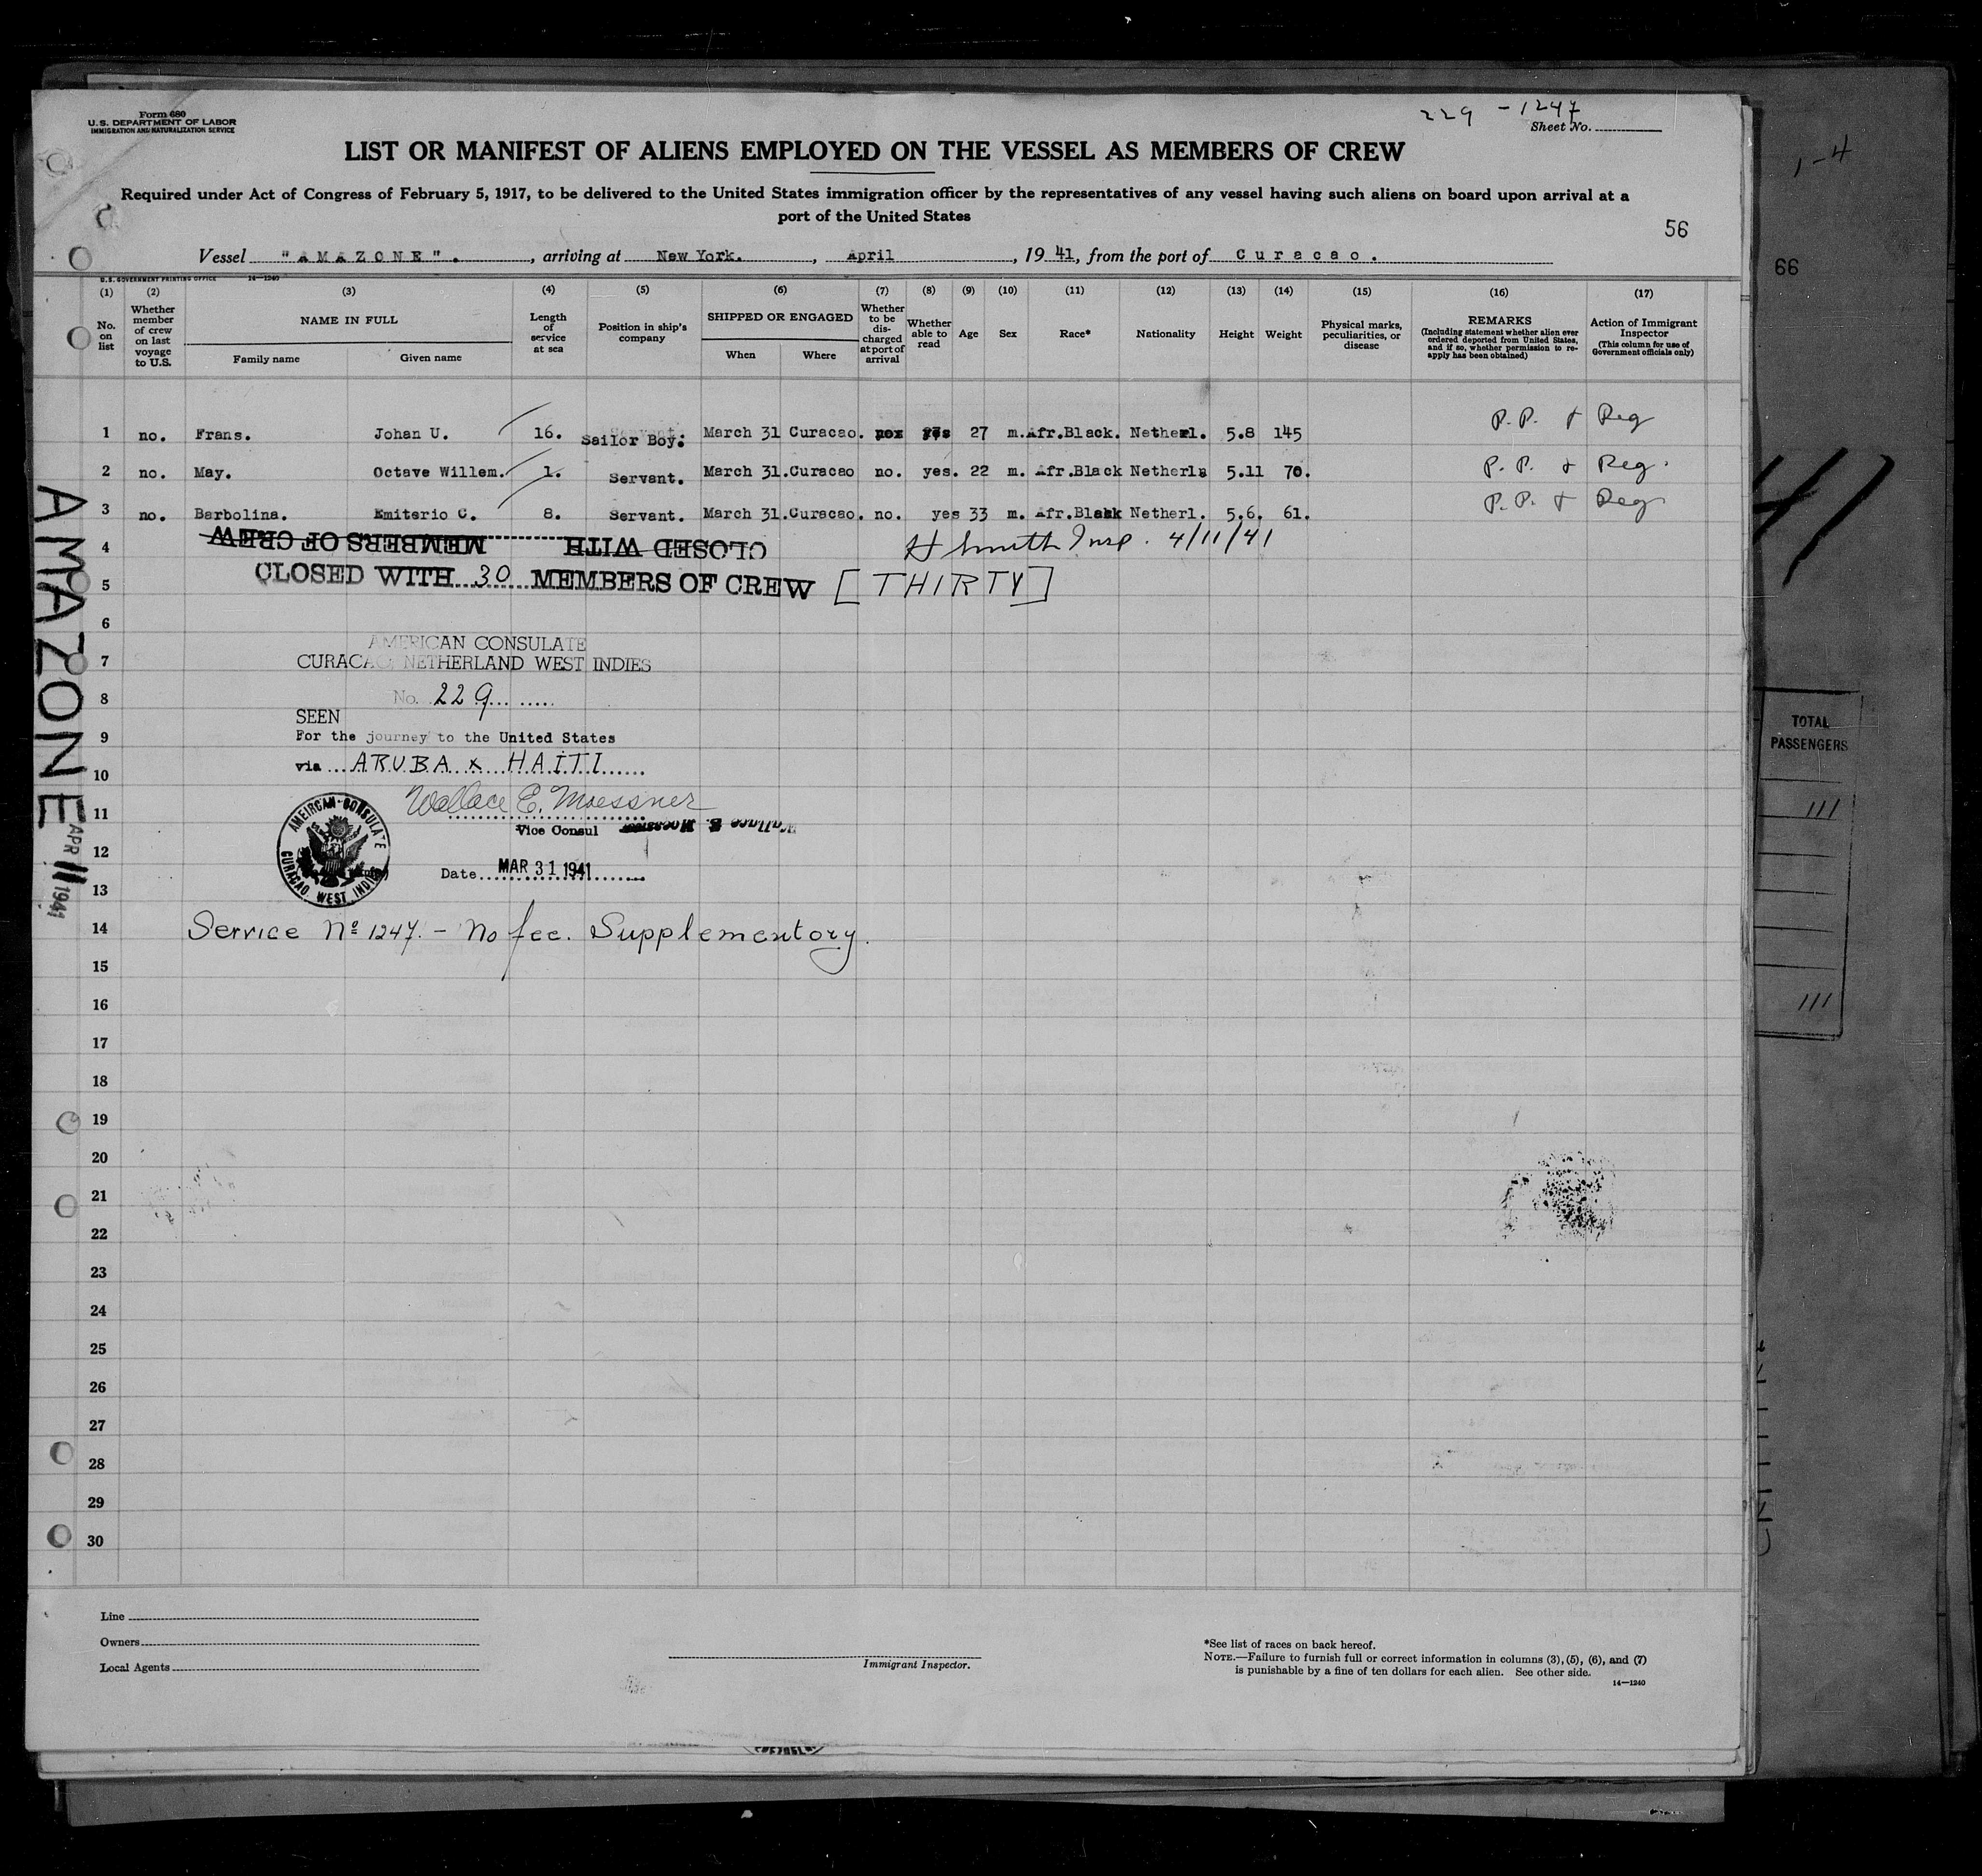 Form 680
U.S. DEPARTMENT OF LABOR
IMMIGRATION AND NATURALIZATION SERVICE
229 - 1247
Sheet No.
1-4
LIST OR MANIFEST OF ALIENS EMPLOYED ON THE VESSEL AS MEMBERS OF CREW
Required under Act of Congress of February 5, 1917, to be delivered to the United States immigration officer by the representatives of any vessel having such aliens on board upon arrival at a
port of the United States
56
66
Vessel "AMAZONE". , arriving at New York. , April , 1941, from the port of Curacao.
U.S. GOVERNMENT PRINTING OFFICE 14—1240
(1) (2) (3) (4) (5) (6) (7) (8) (9) (10) (11) (12) (13) (14) (15) (16) (17)
No. on list
Whether member of crew on last voyage to U.S.
NAME IN FULL
Family name
Given name
Length of service at sea
Position in ship's company
SHIPPED OR ENGAGED
When
Where
Whether to be discharged at port of arrival
Whether able to read
Age
Sex
Race*
Nationality
Height
Weight
Physical marks, peculiarities, or disease
REMARKS
(Including statement whether alien ever ordered deported from United States, and if so, whether permission to re-apply has been obtained)
Action of Immigrant Inspector
(This column for use of Government officials only)
1 no. Frans. Johan U. 16. Sailor Boy. March 31 Curacao. yes 27 m. Afr.Black. Netherl. 5.8 145 P.P. + Reg
2 no. May. Octave Willem. 1. Servant. March 31.Curacao no. yes. 22 m. Afr.Black Netherls 5.11 70. P.P. & Reg.
3 no. Barbolina. Emiterio C. 8. Servant. March 31.Curacao. no. yes 33 m. Afr.Black Netherl. 5.6. 61. P.P. + Reg.
4 CLOSED WITH MEMBERS OF CREW H Smith Insp. 4/11/41
5 CLOSED WITH 30 MEMBERS OF CREW [THIRTY]
6
AMERICAN CONSULATE
7 CURACAO, NETHERLAND WEST INDIES
8 No. 229
SEEN
9 For the journey to the United States
10 via ARUBA & HAITI
Wallace E. Moessner
11 Vice Consul Wallace E. Moessner
12 Date MAR 31 1941
13
AMERICAN CONSULATE
CURACAO WEST INDIES
14 Service No 1247. - No fee. Supplementory.
15
16
17
18
19
20
21
22
23
24
25
26
27
28
29
30
AMAZONE
APR 11 1941
41
TOTAL
PASSENGERS
111
111
Line
Owners
Local Agents
Immigrant Inspector.
*See list of races on back hereof.
NOTE.—Failure to furnish full or correct information in columns (3), (5), (6), and (7)
is punishable by a fine of ten dollars for each alien. See other side.
14—1240